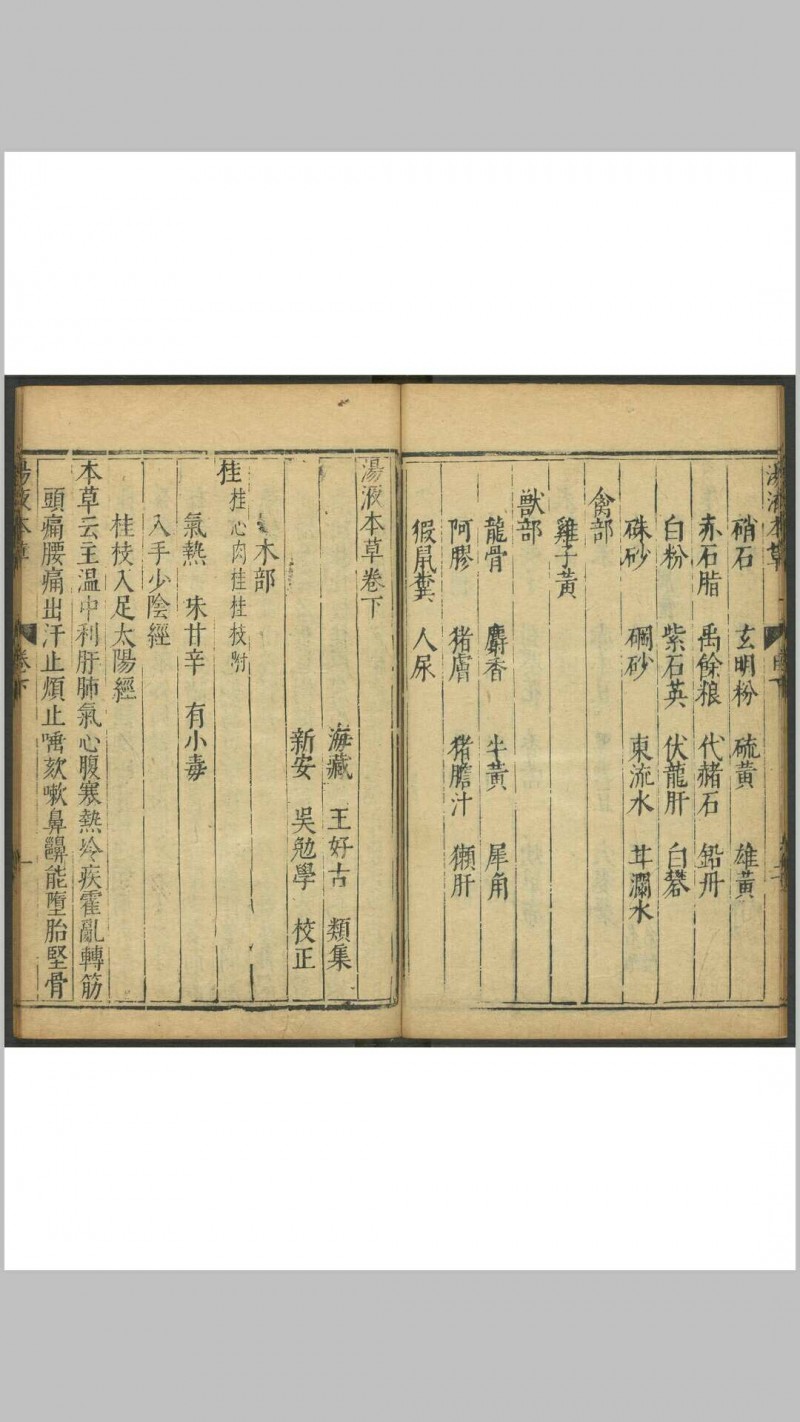 硝石 玄明粉 硫黃 雄黃
赤石脂 禹餘粮 代赭石 鉛丹
白粉 紫石英 伏龍肝 白礬
硃砂 硇砂 東流水 甘瀾水
禽部
雞子黃
獸部
龍骨 麝香 牛黃 犀角
阿膠 猪膚 猪膽汁 獺肝
猳鼠糞 人尿
湯液本草卷下
海藏 王好古 類集
新安 吳勉學 校正
木部
桂 桂心肉桂桂枝附
氣熱 味甘辛 有小毒
入手少陰經
桂枝入足太陽經
本草云主溫中利肝肺氣心腹寒熱冷疾霍亂轉筋
頭痛腰痛出汗止煩止唾欬嗽鼻齆能墮胎堅骨
湯液本草 卷下 一